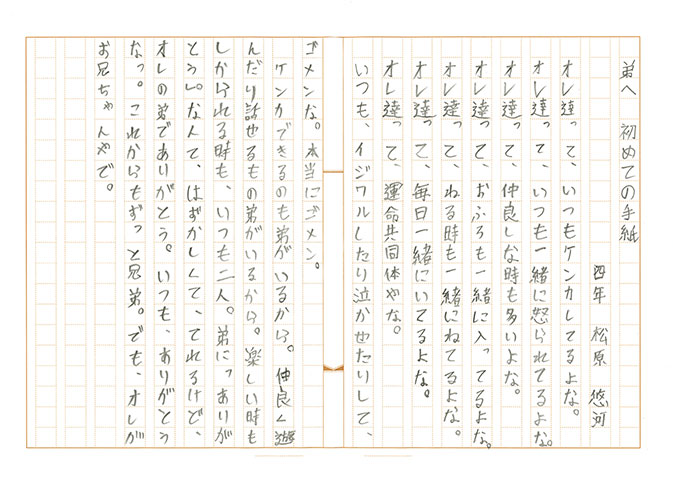 弟へ　初めての手紙
四年　松原　悠河
オレ達って、いつもケンカしてるよな。
オレ達って、いつも一緒に怒られてるよな。
オレ達って、仲良しな時も多いよな。
オレ達って、おふろも一緒に入ってるよな。
オレ達って、ねる時も一緒にねてるよな。
オレ達って、毎日一緒にいてるよな。
オレ達って、運命共同体やな。
いつも、イジワルしたり泣かせたりして、
ゴメンな。本当にゴメン。
ケンカできるのも弟がいるから。仲良く遊
んだり話せるもの弟がいるから。楽しい時も
しかられる時も、いつも二人。弟に「ありが
とう」。なんて、はずかしくて、てれるけど、
オレの弟でありがとう。いつも、ありがとう
なっ。これからもずっと兄弟。でも、オレが
お兄ちゃんやで。